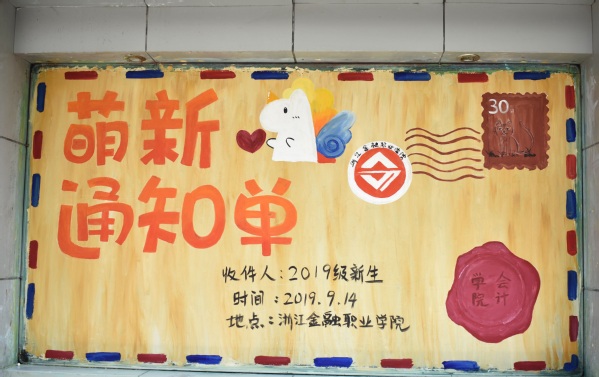 萌新
通知单
30
浙江金融职业学院
收件人:2019级新生
时间:2019.9.14
地点:浙江金融职业学院
会计
学院